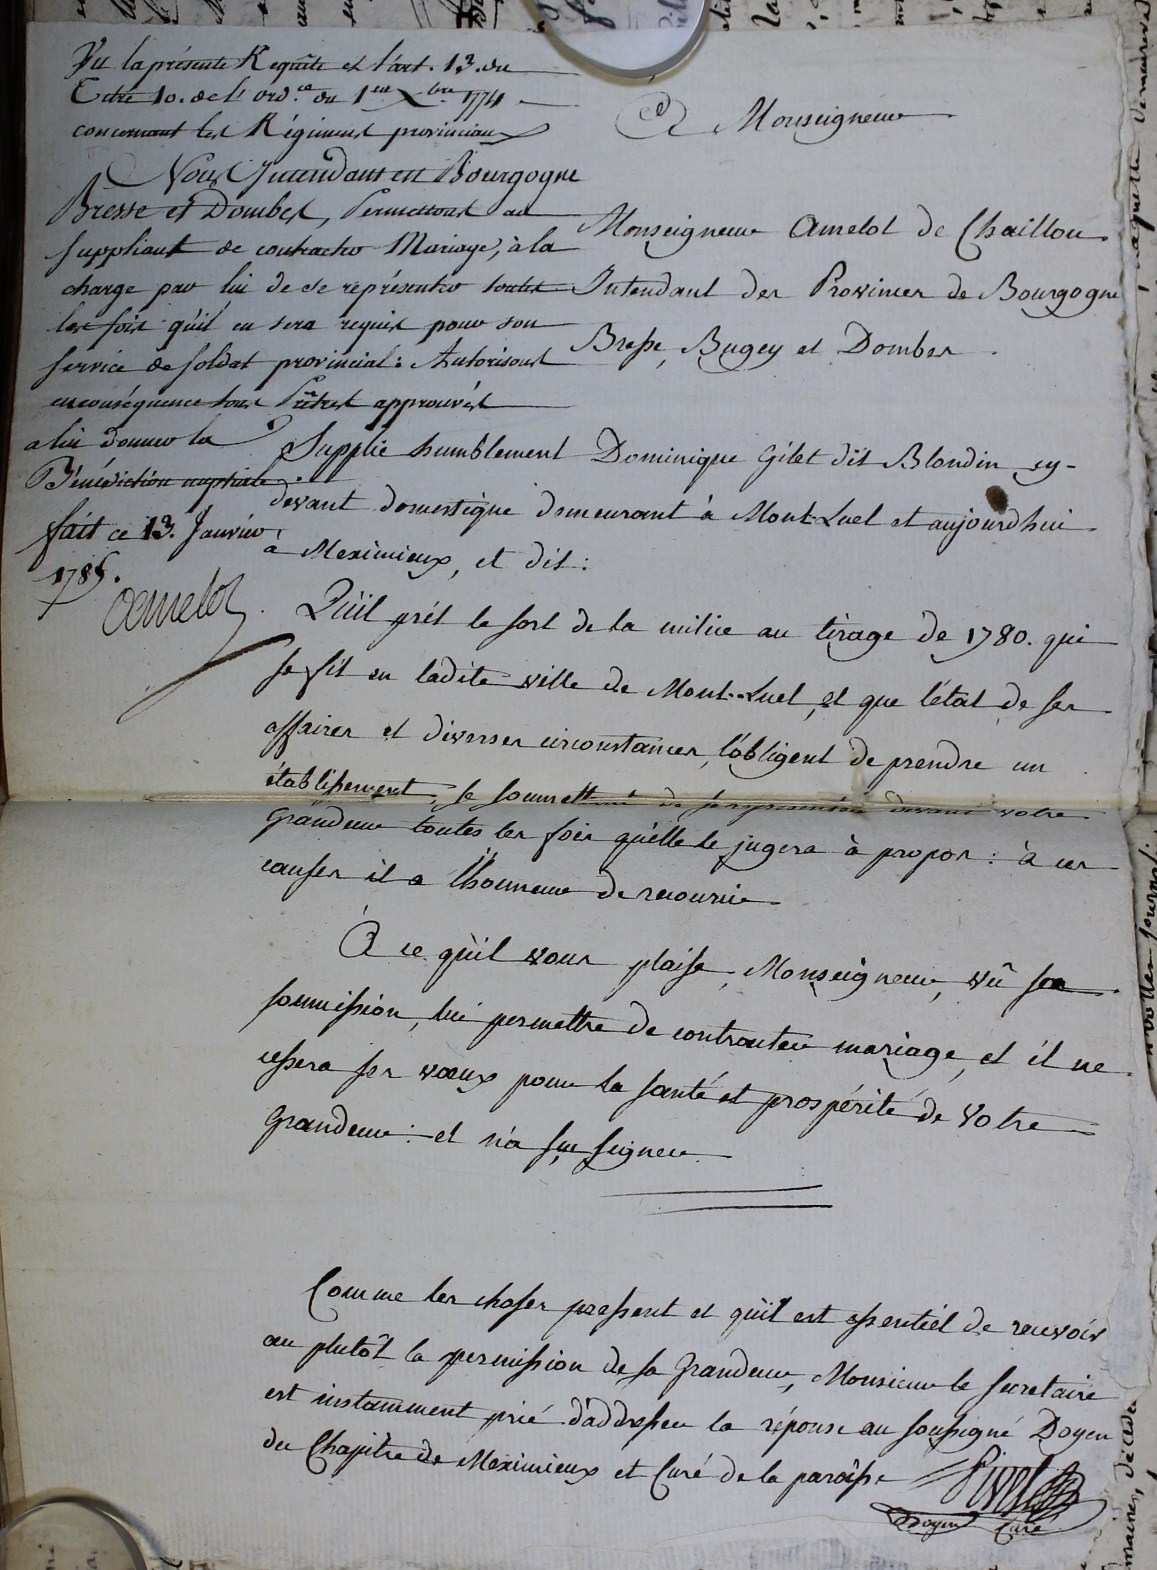 Vu la présente Requête et l'art. 13. du
Titre 10. de l'ord.ce du 1er Xbre 1774
concernant les Régimens provinciaux
Nous Intendant en Bourgogne
Bresse et Dombes, Permettons au
suppliant de contracter Mariage, à la
charge par lui de se représenter toutes
les fois qu'il en sera requis pour son
service de soldat provincial : Autorisons
en conséquence tous Prêtres approuvés
a lui donner la
Bénédiction nuptiale
fait ce 13. Janvier
1785.
Amelot
A Monseigneur
Monseigneur Amelot de Chaillou
Intendant des Provinces de Bourgogne
Bresse, Bugey et Dombes.
Supplie humblement Dominique Gilet dit Blondin cy-
devant domestique demeurant à Mont-Luel et aujourdhui
à Meximieux, et dit :
Qu'il prit le sort de la milice au tirage de 1780. qui
se fit en ladite ville de Mont-Luel, et que l'état de ses
affaires et diverses circonstances, l'obligent de prendre un
établissement, se soumettant de se representer devant votre
Grandeur toutes les fois qu'elle le jugera à propos : à ces
causes il a l'honneur de recourir.
A ce qu'il vous plaise, Monseigneur, vû sa
soumission, lui permettre de contracter mariage, et il ne
cessera ses vœux pour la santé et prospérité de Votre
Grandeur : et n'a sçu signer.
Comme les choses pressent et qu'il est essentiel de recevoir
au plutôt la permission de sa Grandeur, Monsieur le secretaire
est instamment prié d'addresser la réponse au soussigné Doyen
du Chapitre de Meximieux et Curé de la paroisse
Doyen Curé